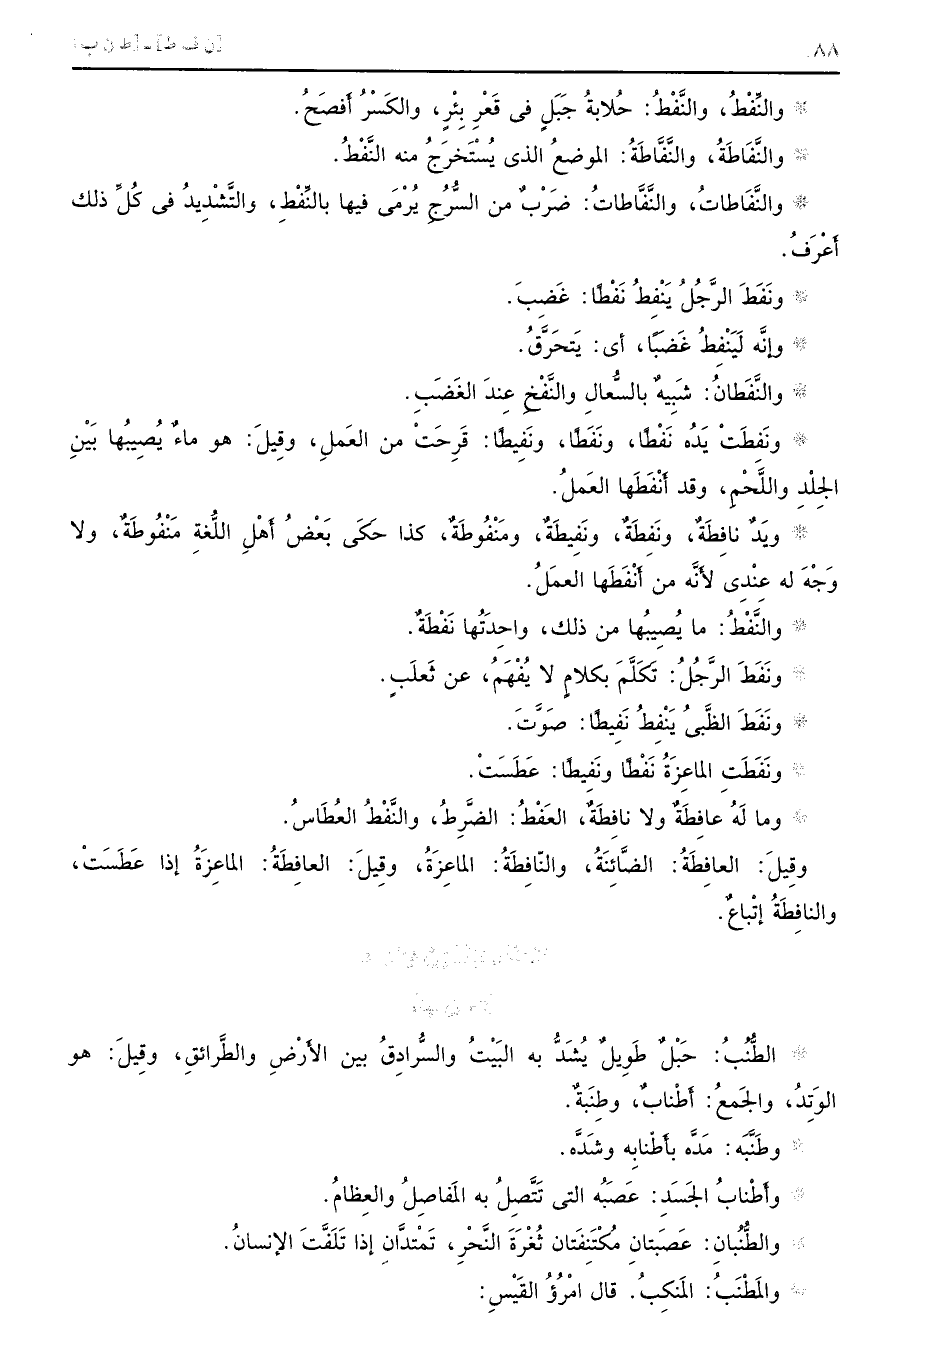 ٨٨ [ن ف ط] - [ط ن ب]
* والنِّفْطُ، والنَّفْطُ: حُلابةُ جَبَلٍ فى قَعْرِ بِئْرٍ، والكَسْرُ أَفصَحُ.
* والنَّفَاطَةُ، والنَّفَّاطَةُ: الموضعُ الذى يُسْتَخرَجُ منه النَّفْطُ.
* والنَّفَاطاتُ، والنَّفَّاطاتُ: ضَرْبٌ من السُّرُجِ يُرْمَى فيها بالنِّفْطِ، والتَّشْدِيدُ فى كُلِّ ذلك
أَعْرَفُ.
* ونَفَطَ الرَّجُلُ يَنْفِطُ نَفْطًا: غَضِبَ.
* وإنَّه لَيَنْفِطُ غَضَبًا، أى: يَتحَرَّقُ.
* والنَّفَطانُ: شَبِيهٌ بالسُّعالِ والنَّفْخِ عِندَ الغَضَبِ.
* ونَفِطَتْ يَدُه نَفْطًا، ونَفَطًا، ونَفِيطًا: قَرِحَتْ من العَملِ، وقِيلَ: هو ماءٌ يُصِيبُها بَيْنِ
الجِلْدِ واللَّحْمِ، وقد أَنْفَطَها العَملُ.
* ويَدٌ نافِطَةٌ، ونَفِطَةٌ، ونَفِيطَةٌ، ومَنْفُوطَةٌ، كذا حكَى بَعْضُ أهْلِ اللُّغةِ مَنْفُوطَةٌ، ولا
وَجْهَ له عِنْدِى لأنَّه من أَنْفَطَها العمَلُ.
* والنَّفْطُ: ما يُصِيبُها من ذلك، واحِدَتُها نَفْطَةٌ.
* ونَفَطَ الرَّجُلُ: تَكَلَّمَ بكلامٍ لا يُفْهَمُ، عن ثَعلَبٍ.
* ونَفَطَ الظَّبىُ يَنْفِطُ نَفِيطًا: صَوَّتَ.
* ونَفَطَتِ الماعِزَةُ نَفْطًا ونَفِيطًا: عَطَسَتْ.
* وما لَهُ عافِطَةٌ ولا نافِطَةٌ، العَفْطُ: الضَّرِطُ، والنَّفْطُ العُطَاسُ.
وقِيلَ: العافِطَةُ: الضَّائنَةُ، والنّافِطَةُ: الماعِزَةُ، وقِيلَ: العافِطَةُ: الماعِزَةُ إذا عَطَسَتْ،
والنافِطَةُ إتْباعٌ.
* الطُّنُبُ: حَبْلٌ طَوِيلٌ يُشَدُّ به البَيْتُ والسُّرادِقُ بين الأرْضِ والطَّرائقِ، وقِيلَ: هو
الوَتِدُ، والجَمعُ: أَطْنابٌ، وطِنَبةٌ.
* وطَنَّبَه: مَدَّه بأَطْنابِه وشَدَّه.
* وأَطْنابُ الجَسَدِ: عَصَبُه التى تَتَّصِلُ به المَفاصِلُ والعِظامُ.
* والطُّنُبانِ: عَصَبتانِ مُكْتَنِفَتان ثُغْرَةَ النَّحْرِ، تَمْتدَّانِ إذا تَلَفَّتَ الإنسانُ.
* والمَطْنَبُ: المَنكِبُ. قال امْرُؤُ القَيْسِ: